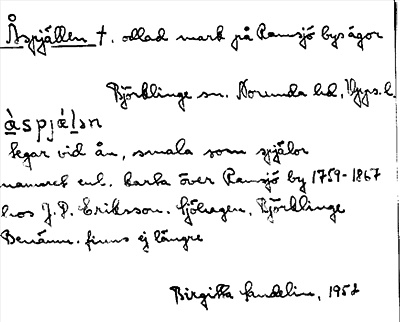 Åspjällen †. odlad mark på Ramsjö bys ägor
Björklinge sn. Norunda hd, Upps. l.
àspjǽlən
tegar vid ån, smala som spjälor
namnet enl. karta över Ramsjö by 1759-1867
hos J. P. Eriksson. Sjöhagen, Björklinge
Benämn. finns ej längre
Birgitta Sundelin, 1952